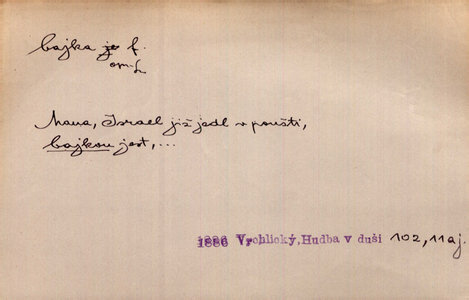 bajka je f.
Mana, Israel již jedl v poušti,
bajkou jest,...
1886 Vrchlický, Hudba v duši 102, 11 aj.